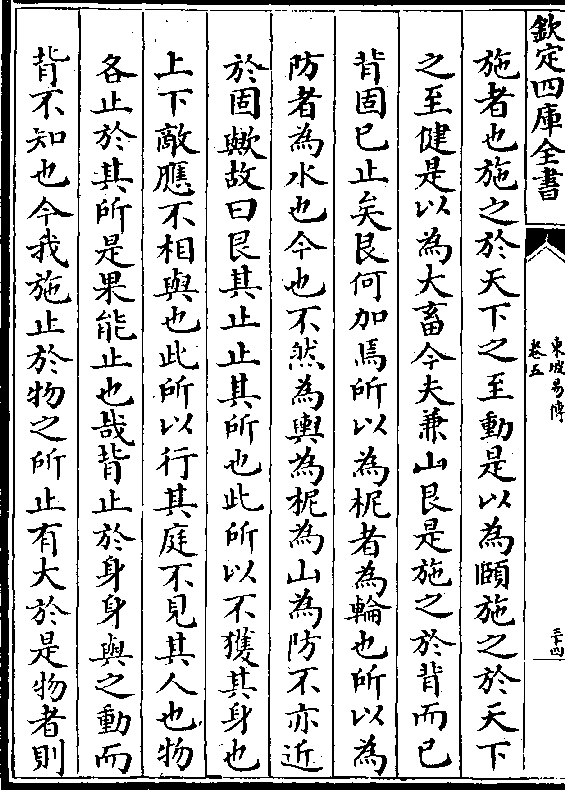 欽定四庫全書
東坡易傳
卷五
三十四
施者也施之於天下之至動是以為頤施之於天下
之至健是以為大畜今夫兼山艮是施之於背而已
背固已止矣艮何加焉所以為柅者為輪也所以為
防者為水也今也不然為輿為柅為山為防不亦近
於固歟故曰艮其止止其所也此所以不獲其身也
上下敵應不相與也此所以行其庭不見其人也物
各止於其所是果能止也哉背止於身身與之動而
背不知也今我施止於物之所止有大於是物者則